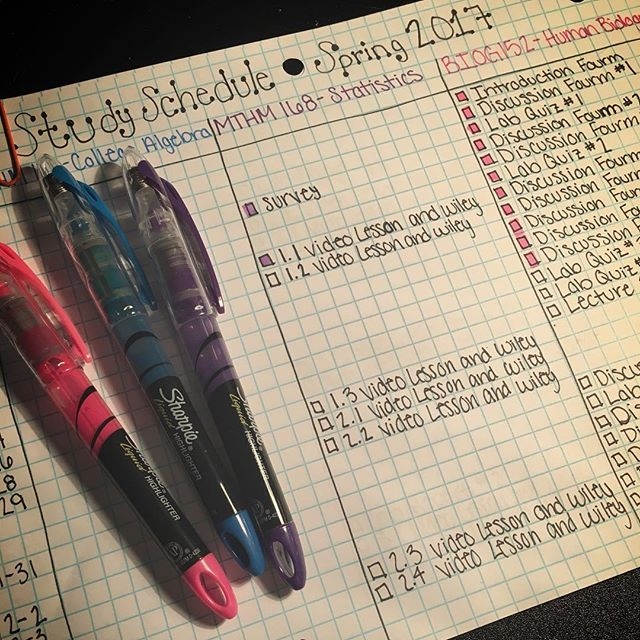 Study Schedule • Spring 2017
College Algebra
MTHM 168 - Statistics
BIOG152 - Human Biolog
survey
1.1 video Lesson and wiley
1.2 video Lesson and wiley
1.3 video Lesson and wiley
2.1 video Lesson and wiley
2.2 video Lesson and wiley
2.3 video Lesson and wiley
2.4 video Lesson and wiley
Introduction Fourm
Discussion Fourm #1
Lab Quiz #1
Discussion Fourm #
Discussion Fourm
Lab Quiz #2
Discussion Fourm
Discussion Fourm
Discussion Fourm
Discussion Fo
Discussion
Lab Quiz #
Lab Quiz #
Lecture
Discu
Lab
Di
La
Di
29
1-31
2-2
Sharpie
Liquid
HIGHLIGHTER
Liquid
HIGHLIGHTER